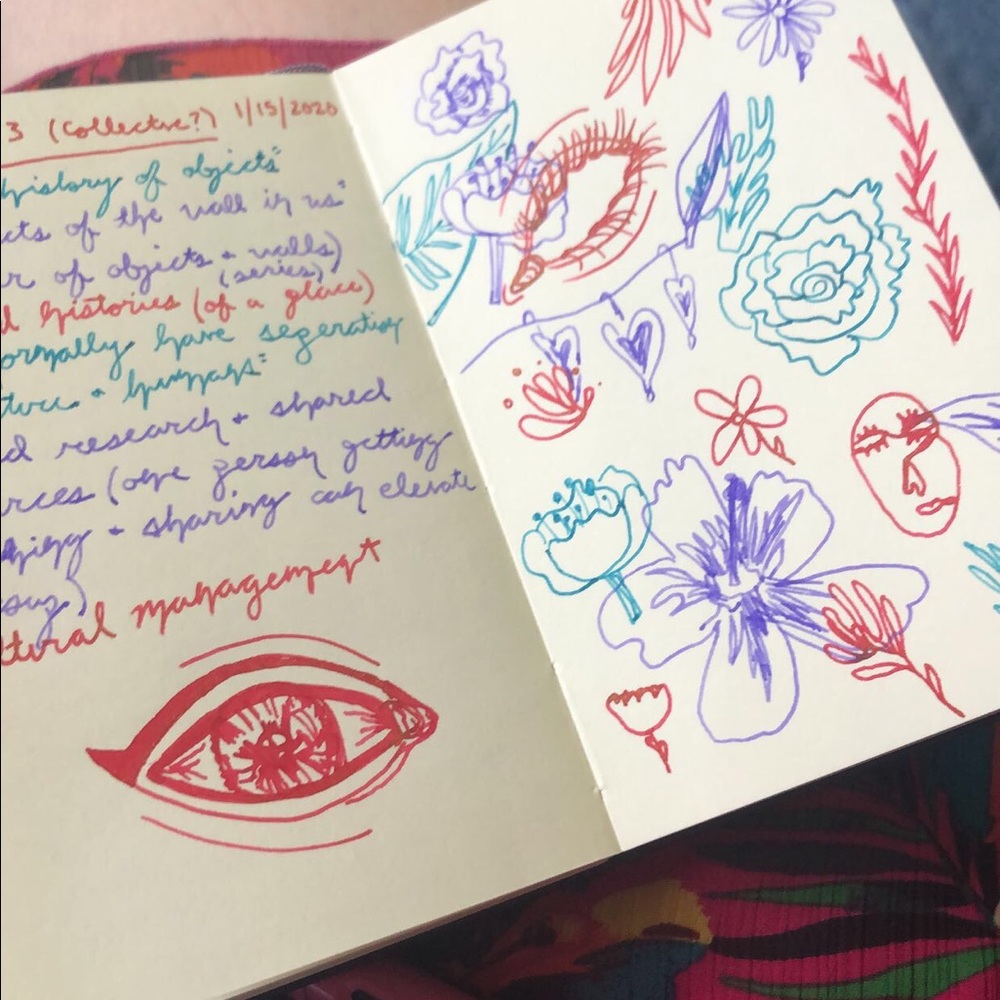 3 (Collective?) 1/15/2020
history of objects"
cts of the wall in us"
r of objects + walls)
(series)
d histories (of a place)
ormally have segeration
ture + humans"
d research + shared
rces (one person getting
hing + sharing can elevate
ltural management